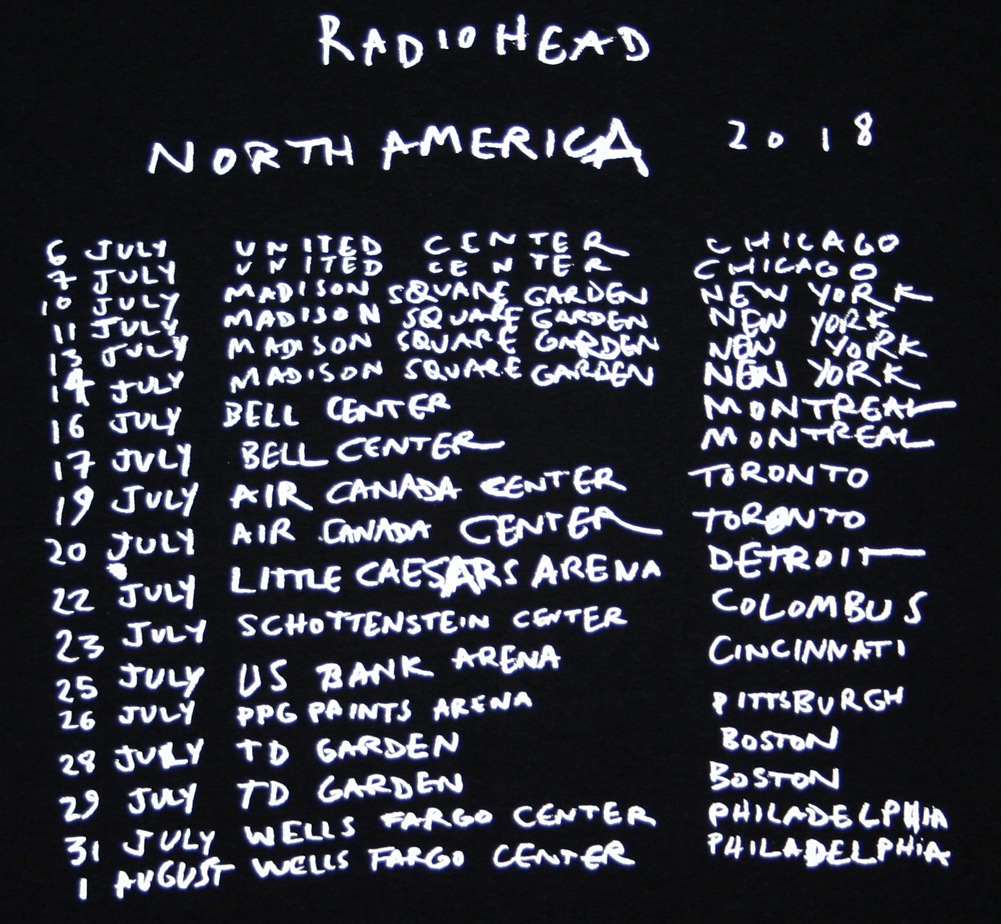 RADIOHEAD
NORTH AMERICA 2018
6 JULY UNITED CENTER CHICAGO
7 JULY UNITED CENTER CHICAGO
10 JULY MADISON SQUARE GARDEN NEW YORK
11 JULY MADISON SQUARE GARDEN NEW YORK
13 JULY MADISON SQUARE GARDEN NEW YORK
14 JULY MADISON SQUARE GARDEN NEW YORK
16 JULY BELL CENTER MONTREAL
17 JULY BELL CENTER MONTREAL
19 JULY AIR CANADA CENTER TORONTO
20 JULY AIR CANADA CENTER TORONTO
22 JULY LITTLE CAESARS ARENA DETROIT
23 JULY SCHOTTENSTEIN CENTER COLOMBUS
25 JULY US BANK ARENA CINCINNATI
26 JULY PPG PAINTS ARENA PITTSBURGH
28 JULY TD GARDEN BOSTON
29 JULY TD GARDEN BOSTON
31 JULY WELLS FARGO CENTER PHILADELPHIA
1 AUGUST WELLS FARGO CENTER PHILADELPHIA